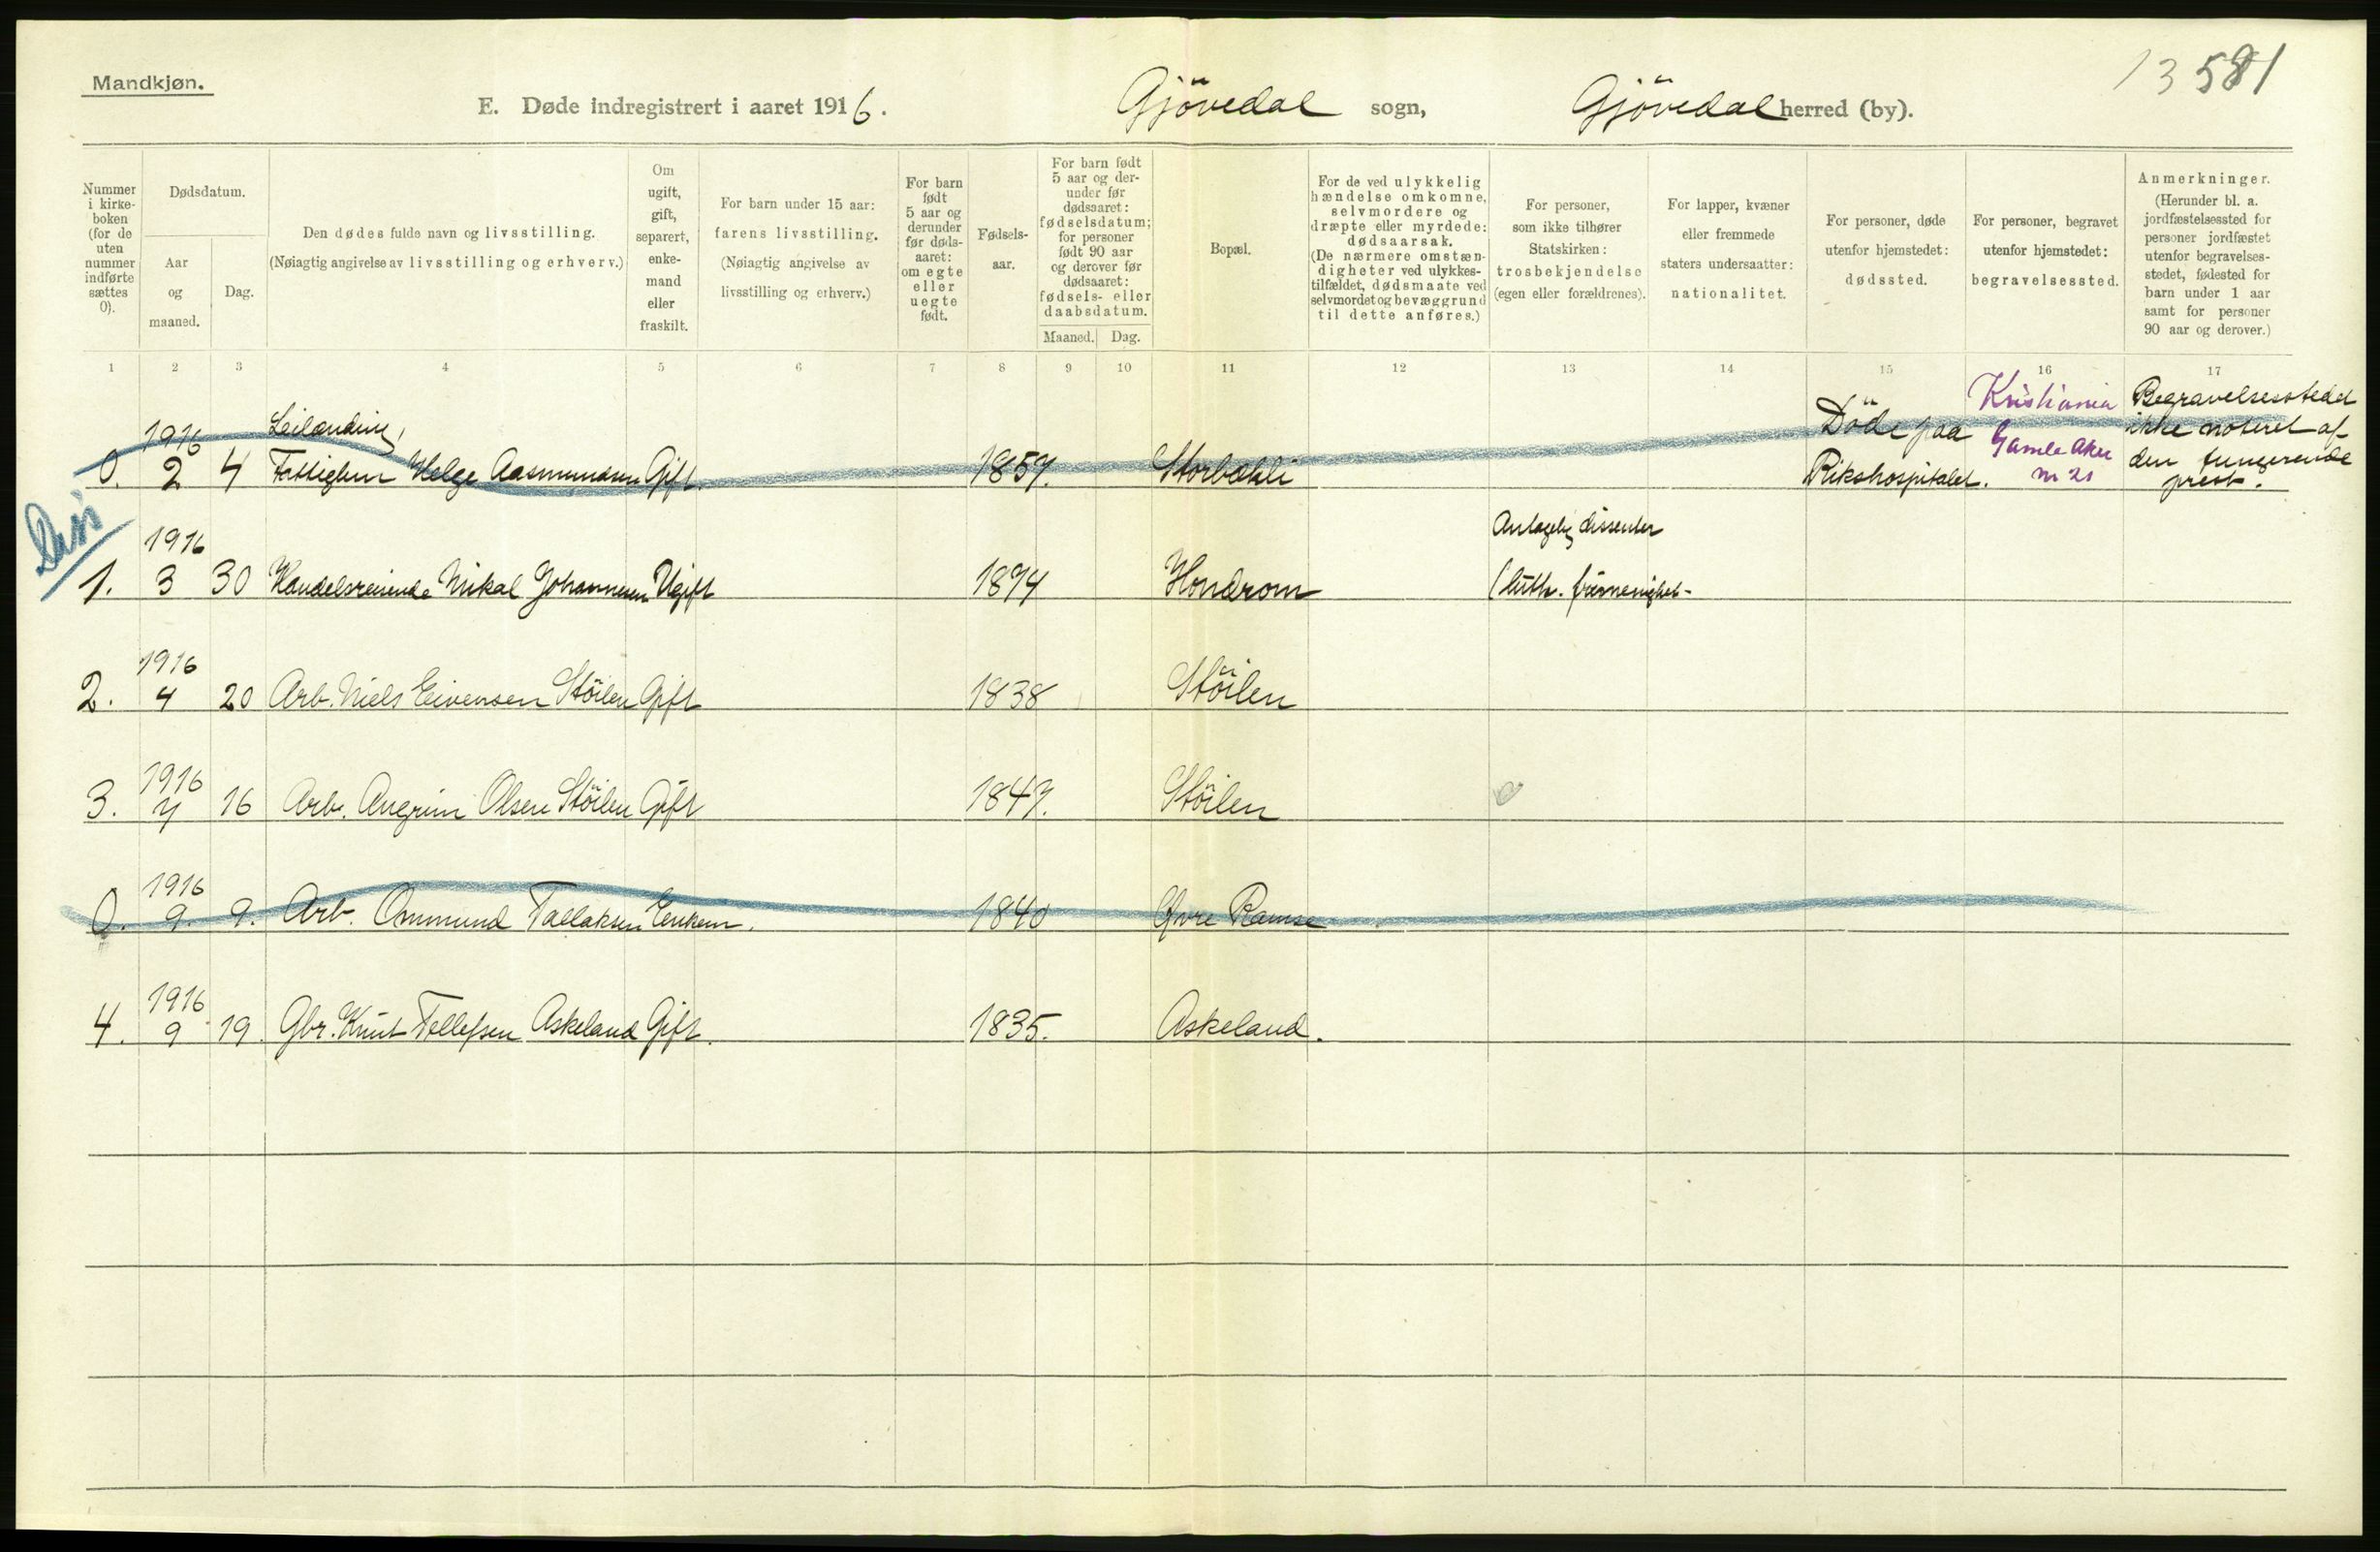 Mandkjøn.
13 581
E. Døde indregistrert i aaret 1916. Gjövedal sogn, Gjövedal herred (by).
Nummer i kirke-boken (for de uten nummer indførte sættes 0).
Dødsdatum.
Aar og maaned.
Dag.
Den dødes fulde navn og livsstilling.
(Nøiagtig angivelse av livsstilling og erhverv.)
Om ugift, gift, separert, enke-mand eller fraskilt.
For barn under 15 aar: farens livsstilling.
(Nøiagtig angivelse av livsstilling og erhverv.)
For barn født 5 aar og derunder før døds-aaret: om egte eller uegte født.
Fødsels-aar.
For barn født 5 aar og der-under før dødsaaret: fødselsdatum; for personer født 90 aar og derover før dødsaaret: fødsels- eller daabsdatum.
Maaned. Dag.
Bopæl.
For de ved ulykkelig hændelse omkomne, selvmordere og dræpte eller myrdede: dødsaarsak.
(De nærmere omstæn-digheter ved ulykkes-tilfældet, dødsmaate ved selvmordet og bevæggrund til dette anføres.)
For personer, som ikke tilhører Statskirken: trosbekjendelse (egen eller forældrenes).
For lapper, kvæner eller fremmede staters undersaatter: nationalitet.
For personer, døde utenfor hjemstedet: dødssted.
For personer, begravet utenfor hjemstedet: begravelsessted.
Anmerkninger.
(Herunder bl. a. jordfæstelsessted for personer jordfæstet utenfor begravelses-stedet, fødested for barn under 1 aar samt for personer 90 aar og derover.)
1 2 3 4 5 6 7 8 9 10 11 12 13 14 15 16 17
1916 Leilænding, Döde paa Kristiania Begravelsesstedet
ikke noteret af
0. 2 4 Fattiglem Helge Aasmundsen Gift. 1857. Rikshospitalet. Gamle Aker nr 21 den fungerende
prest.
Diss
1916 Antagelig dissenter
1. 3 30 Handelsreisende Mikal Johannesen Ugift 1874 Hondrom (luth. frimenighet-
1916
2. 4 20 Arb. Niels Eivensen Stöilen Gift 1838 Stöilen
1916
3. 7 16 Arb. Angrim Olsen Stöilen Gift 1847. Stöilen
1916
0. 9. 9. Arb. Ommund Tallaksen Enkem. 1840 Övre Ramse
1916
4. 9 19. Gbr. Knut Tellefsen Askeland Gift. 1835. Askeland.